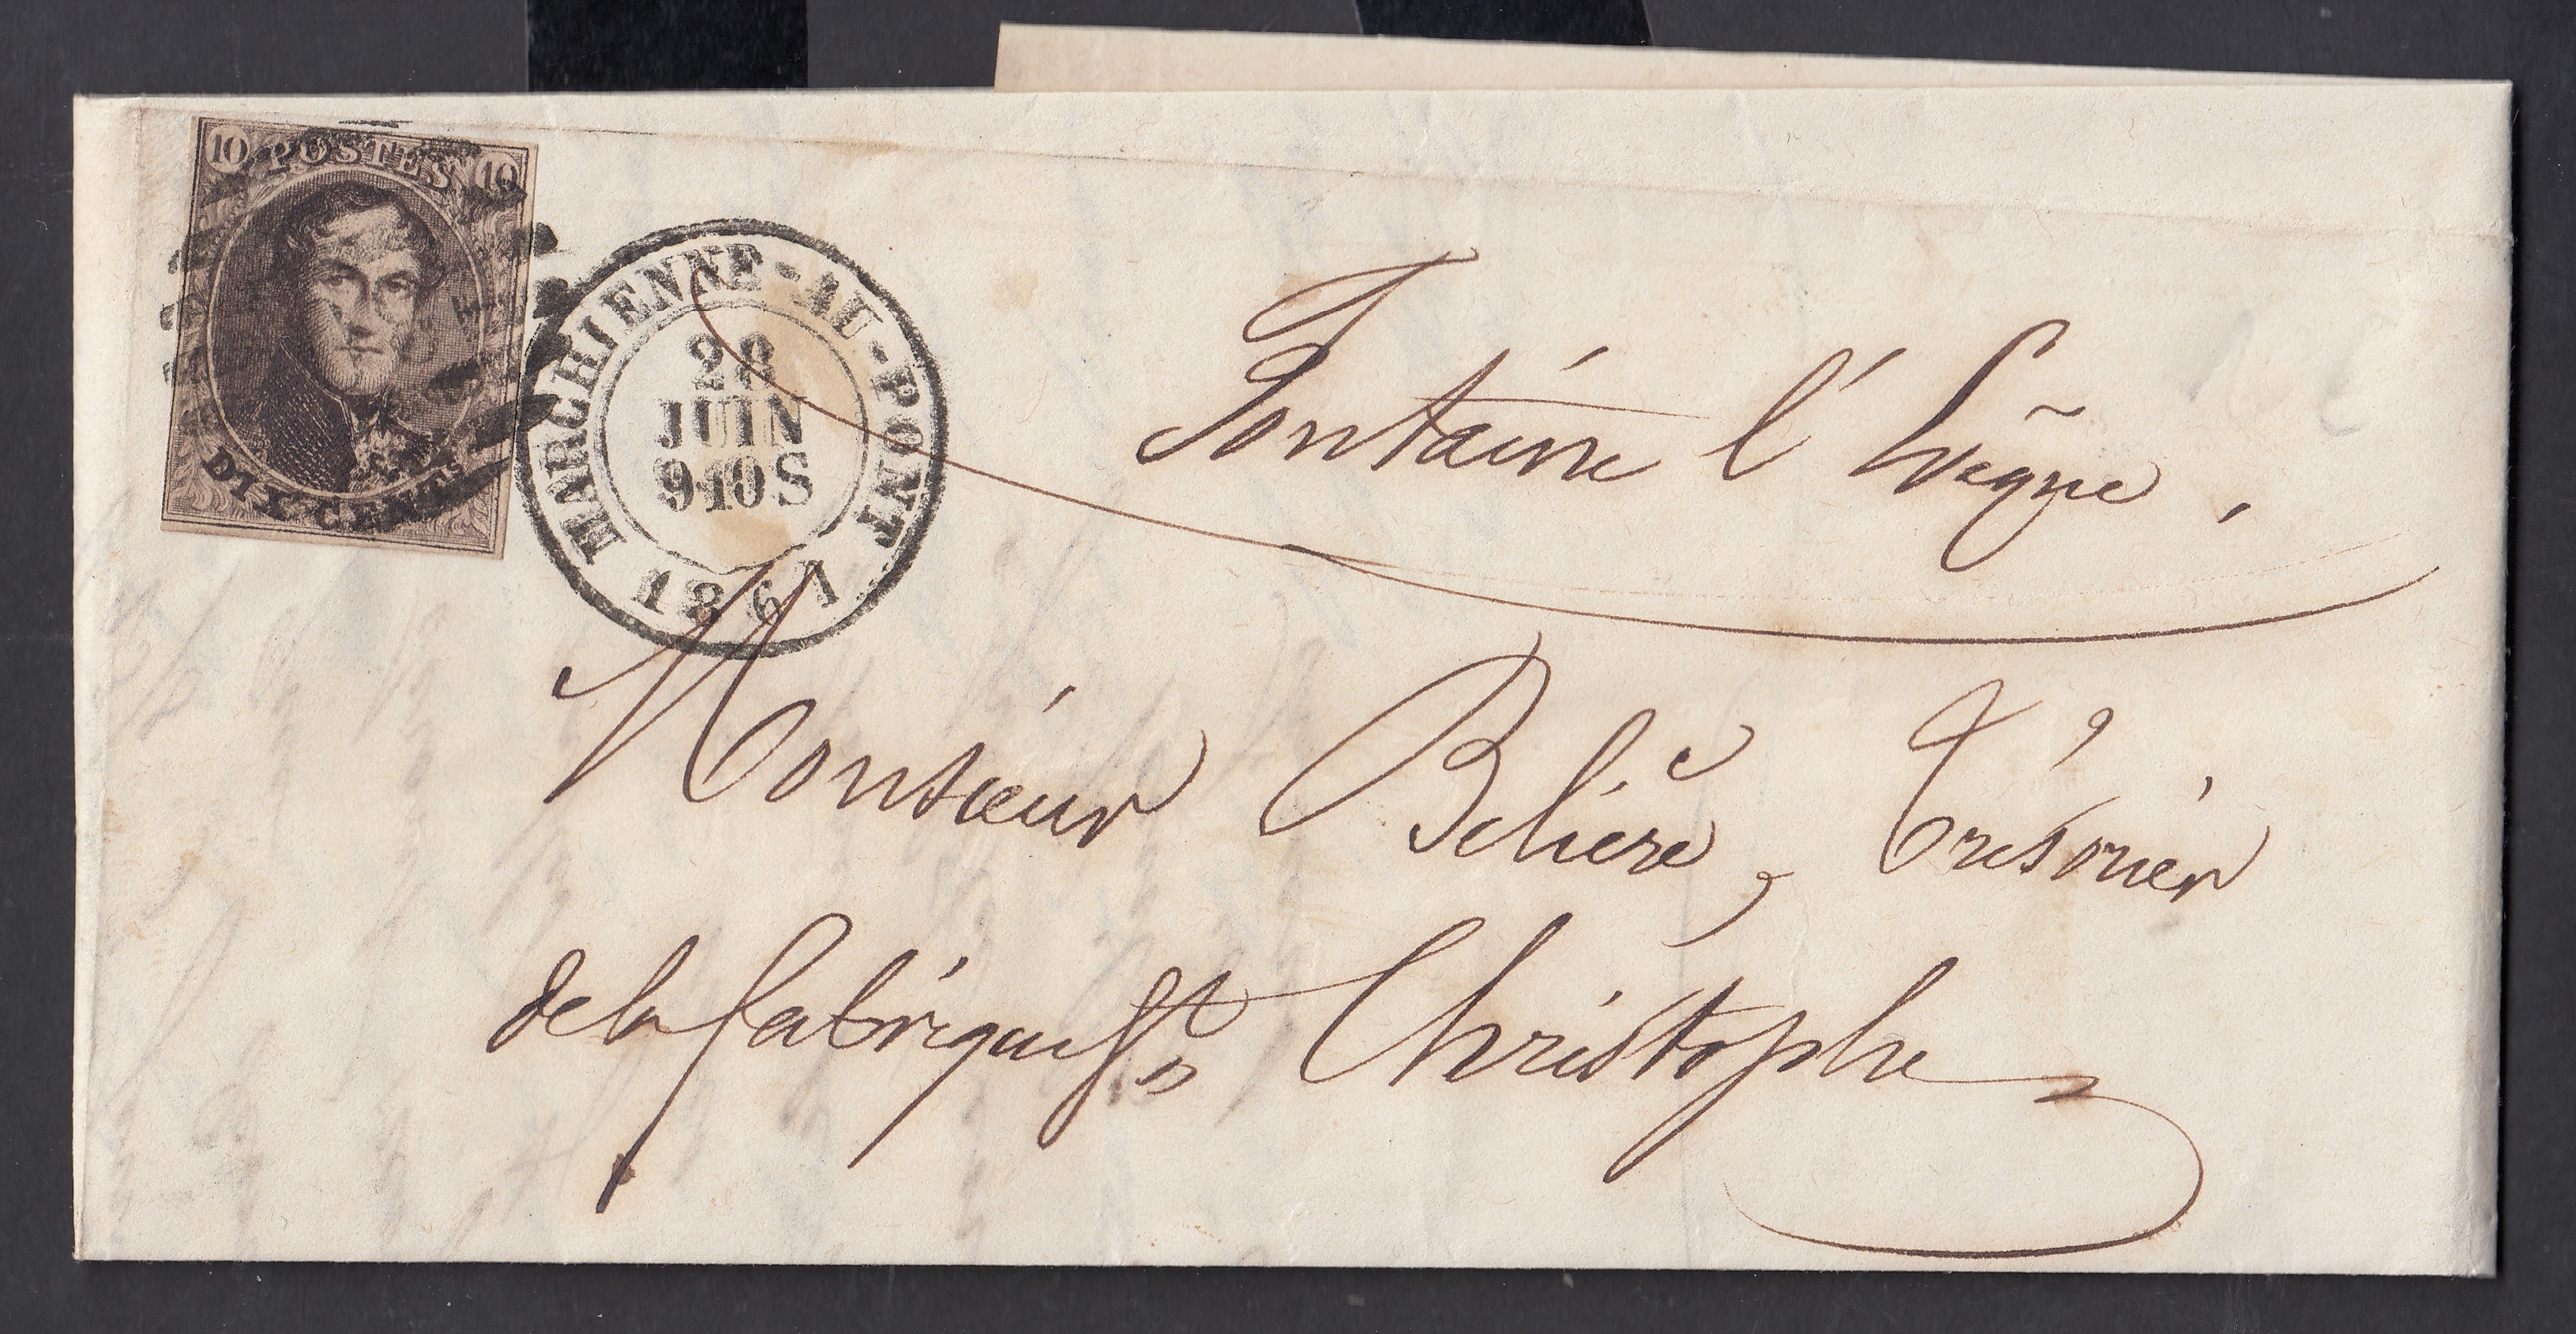 10 POSTES 10
DIX CENTS
MARCHIENNE-AU-PONT
28
JUIN
9-10 S
1861
Fontaine l'Evêque,
Monsieur Béliere, Trésorier
de la fabrique St Christophe